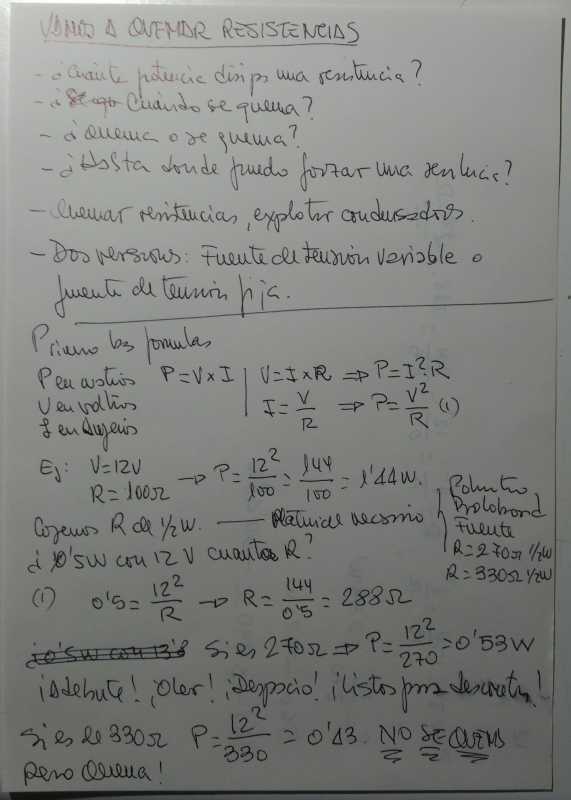 VAMOS A QUEMAR RESISTENCIAS
- ¿Cuánta potencia disipa una resistencia?
- ¿Cuándo se quema?
- ¿Quema o se quema?
- ¿Hasta donde puedo forzar una resistencia?
- Quemar resistencias, explotar condensadores.
- Dos versiones: Fuente de tensión variable o
fuente de tensión fija.
Primero las formulas
P en watios P = V x I | V = I x R ⇒ P = I².R
V en voltios I = V/R ⇒ P = V²/R (1)
I en Amperios
Ej: V = 12V → P = 12²/100 = 144/100 = 1'44W.
R = 100Ω
Cogemos R de 1/2 W. — Material necesario
Polímetro
Protoboard
Fuente
R = 270Ω 1/2W
R = 330Ω 1/2W
¿0'5W con 12V cuanta R?
(1) 0'5 = 12²/R → R = 144/0'5 = 288Ω
Si es 270Ω ⇒ P = 12²/270 = 0'53W
¡Adelante! ¡Oler! ¡Despacio! ¡Listos para desconectar!
Si es de 330Ω P = 12²/330 = 0'43. NO SE QUEMA
Pero Quema!